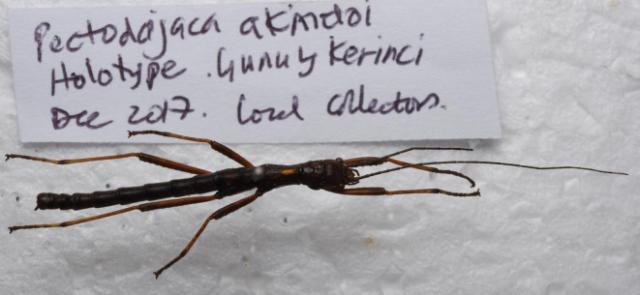 Pectodajaca akindoi
Holotype. Gunung Kerinci
Dec 2017. Local collectors.